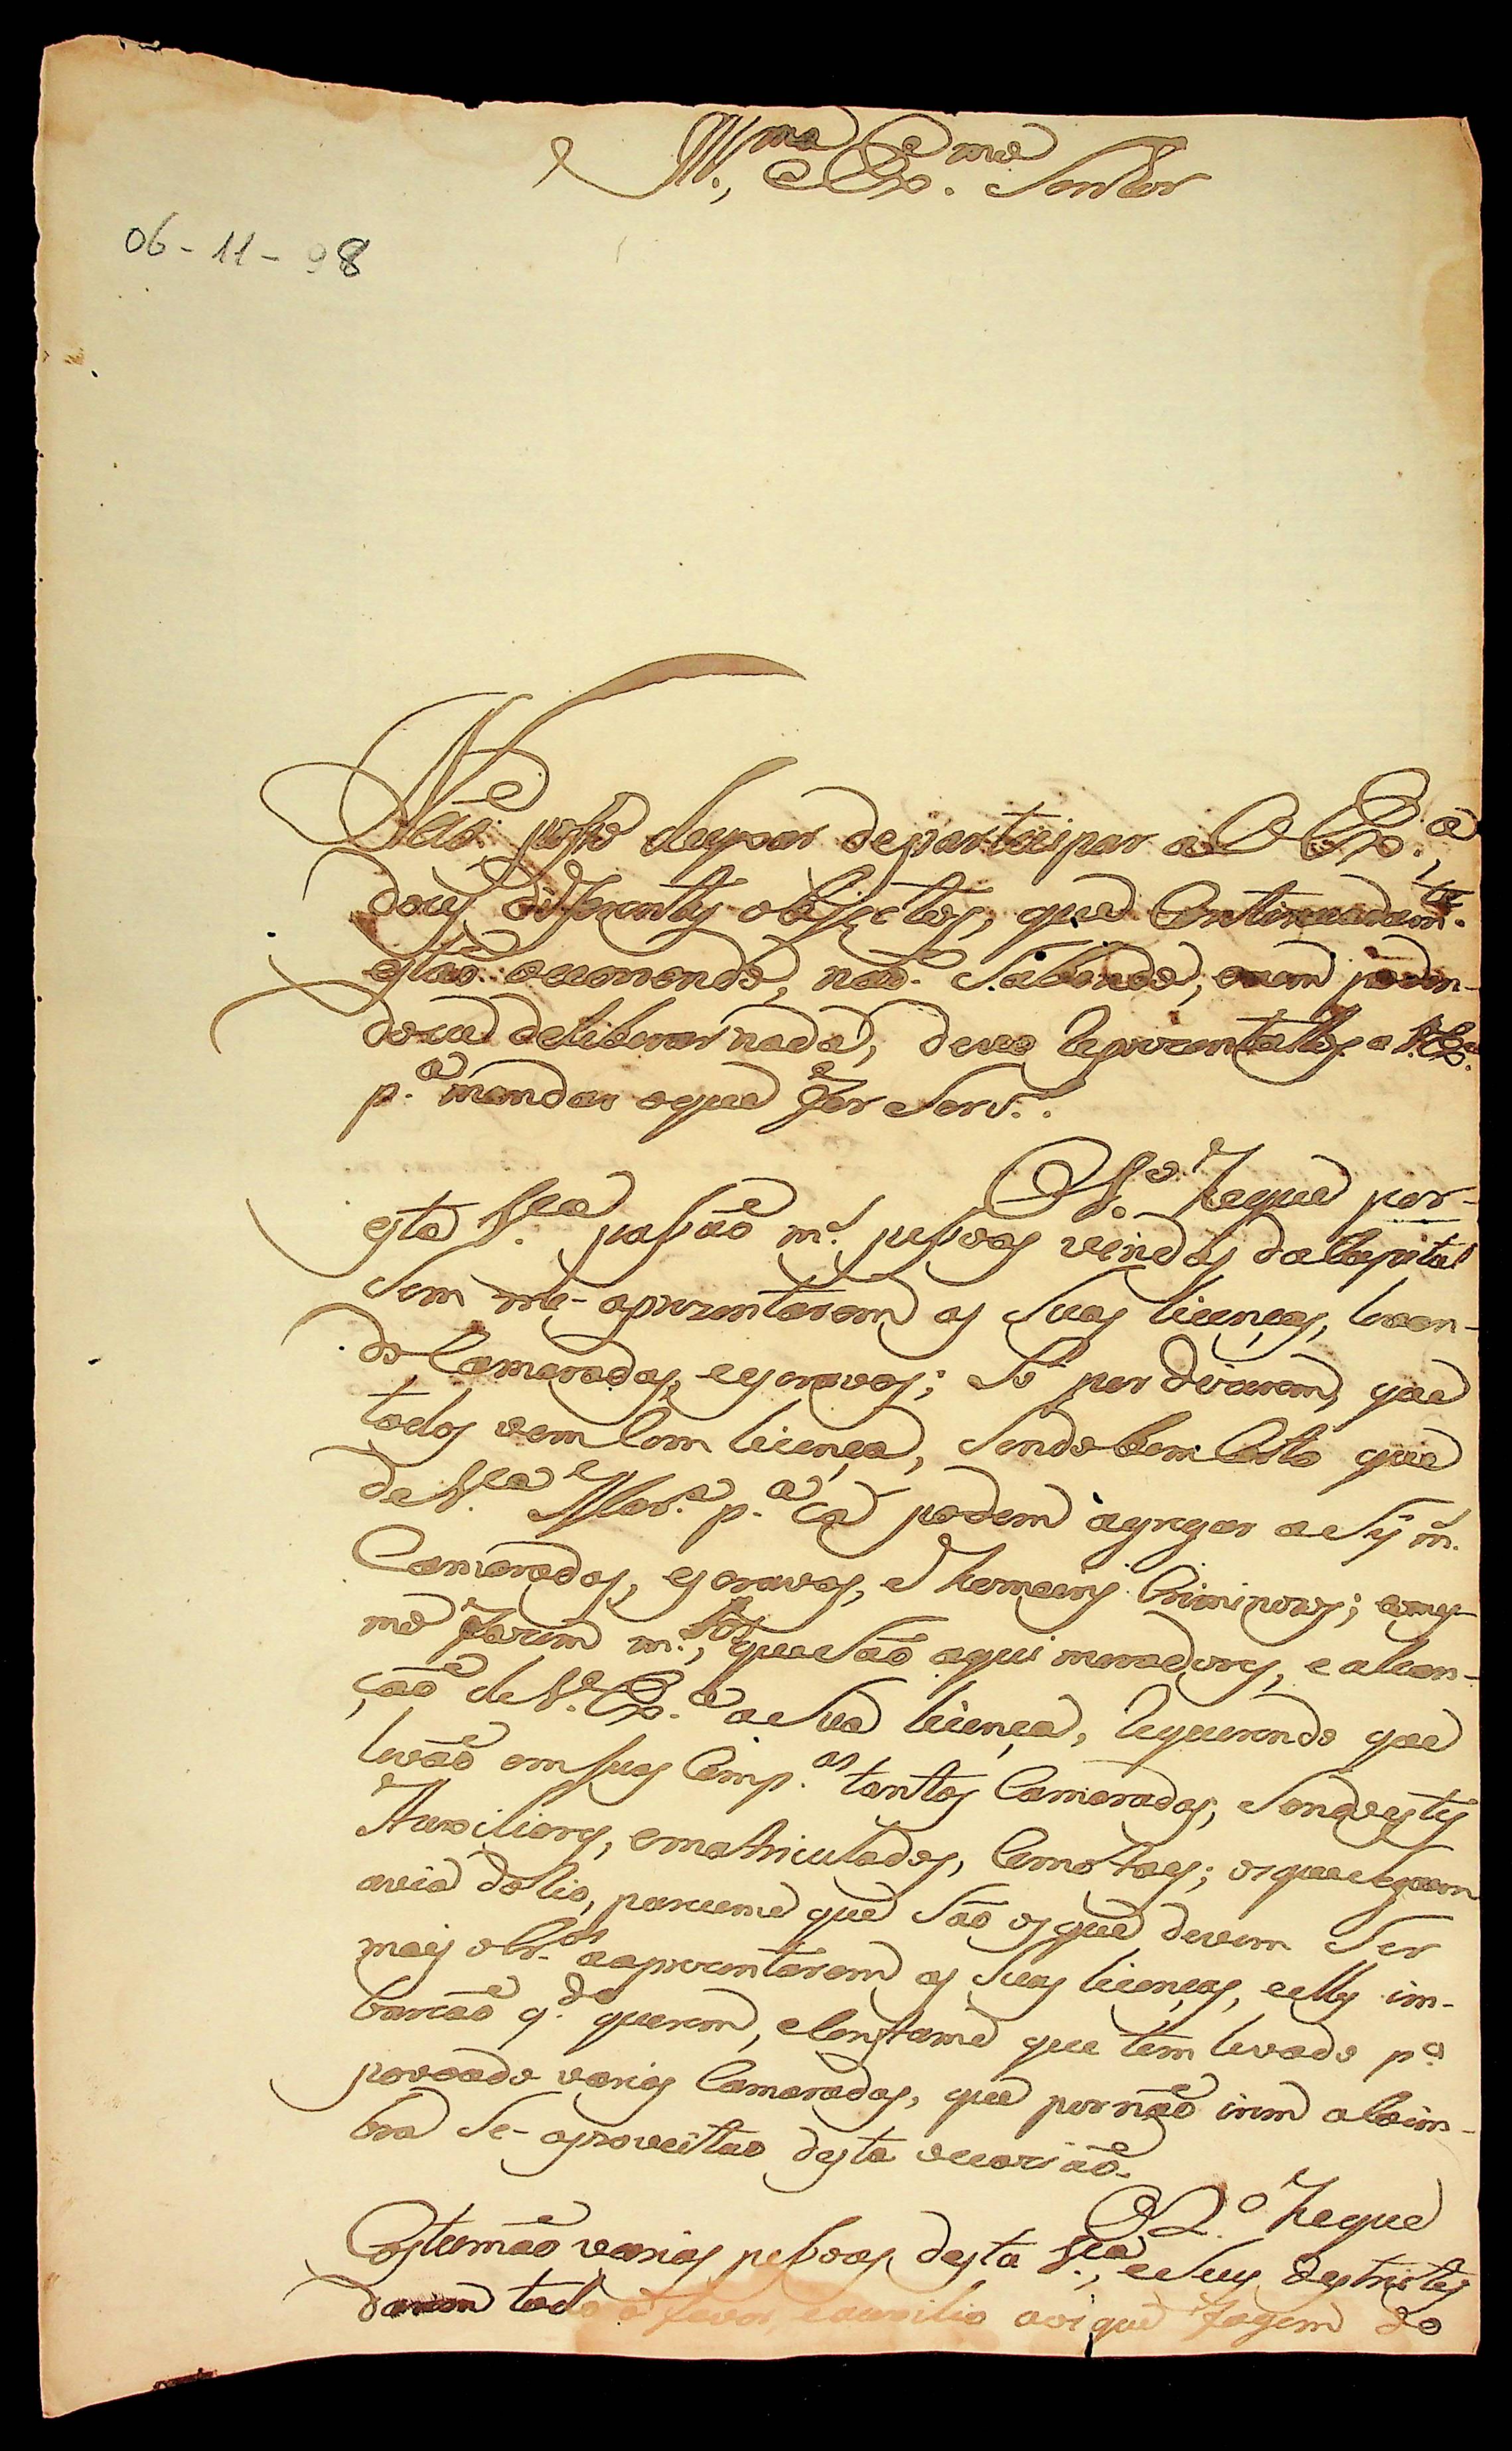 Ill.mo e Ex.mo Senhor
06-11-98
Não posso deixar departicipar a V Ex.a
dous diferentes objectos, que Continuadam.te
estão occorrendo, não Sabendo, enem poden-
doeu deliberar nada, devo reprezentallos a V. Ex.a
p.a mandar oque for Serv.o.
O 1.o he que por-
esta V.a passão m.s pessoas vindas da Capital
Sem me-aprezentarem as Suas licenças, levan-
do Camaradas, eescravos; Só por dizerem, que
todos vem Com licença, Sendo bem Certo que
de V.a Mar.a p.a cá podem agregar aSy m.s
Camaradas, escravos, e homeins Criminozos; omes-
mo fazem m.tos, queSão aqui moradores, ealcan-
ção de V. Ex.a aSua licença, requerendo que
levão em suas Comp.as tantos Camaradas, Sendoestes
Auxiliares, ematriculados, Como taes; os que segem
avia do Rio, pareceme que São os que devem Ser
mais obr.os aaprezentarem as Suas licenças, eelles im-
barcão q.do querem, eConstame que tem levado p.a
povoado varios Camaradas, que por não irem a Coim-
bra Se-aproveitão desta occazião.
O 2.o he que
Costumão varias pessoas desta V.a, eSeus destrictos
darem todo o favor, eauxilio aos que fogem do